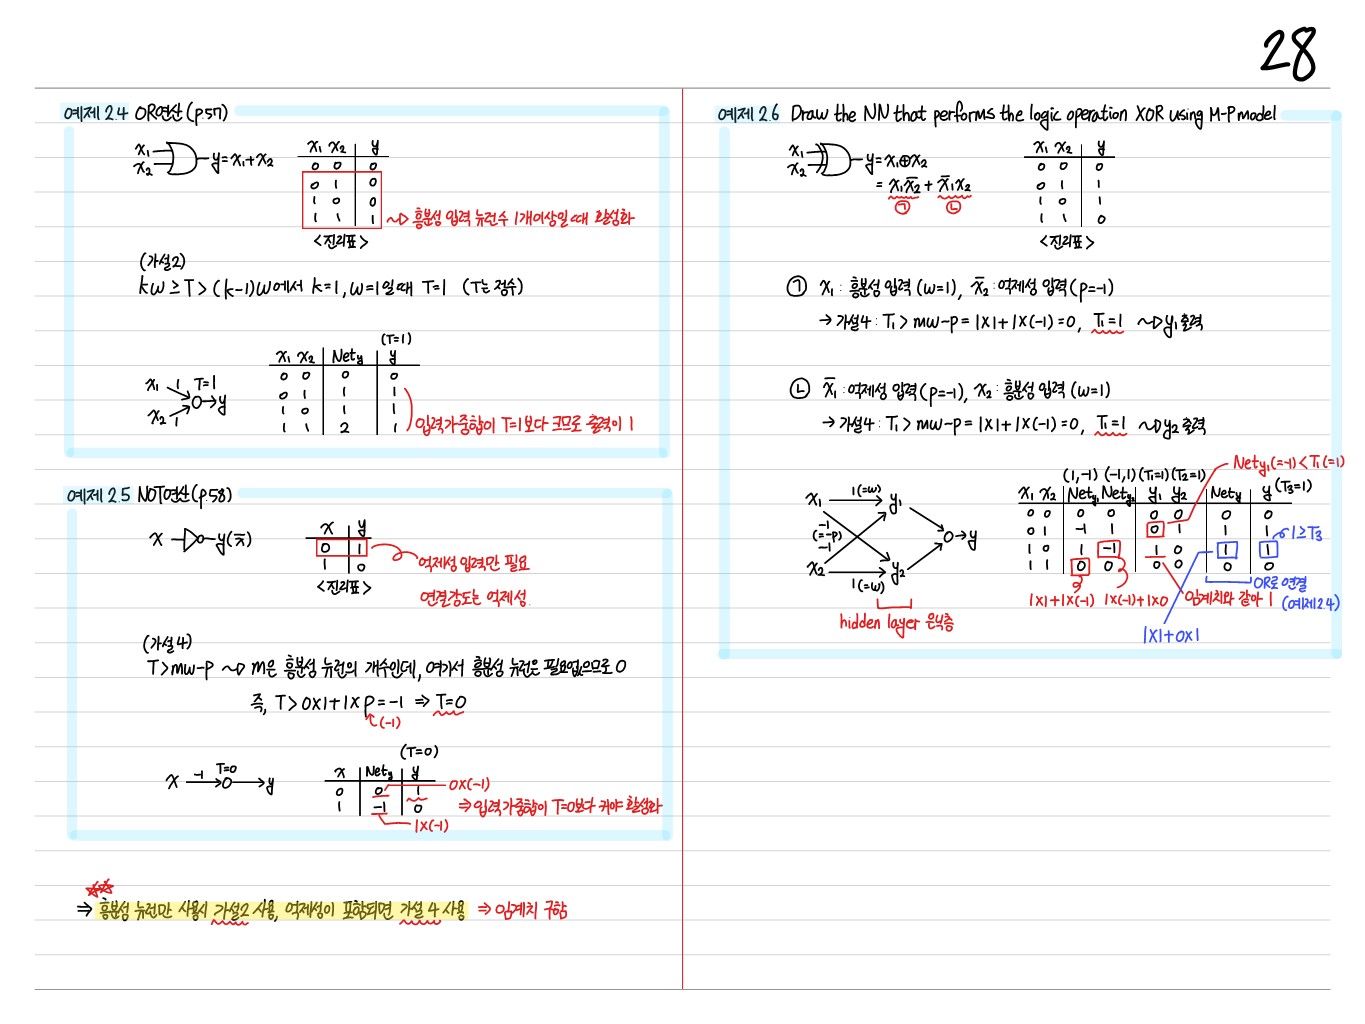 28
예제 2.4 OR연산(p.57)
x₁
x₂
y=x₁+x₂
x₁ x₂ y
0 0 0
0 1 0
1 0 0
1 1 1
~> 흥분성 입력 뉴런수 1개이상일 때 활성화
<진리표>
(가설2)
kw≥T>(k-1)w에서 k=1, w=1일 때 T=1 (T는 정수)
(T=1)
x₁ x₂ Net_y y
0 0 0 0
0 1 1 1
1 0 1 1
1 1 2 1
입력가중합이 T=1보다 크므로 출력이 1
x₁ 1 T=1
→y
x₂ 1
예제 2.5 NOT연산(p.58)
x y(x̄)
x y
0 1
1 0
억제성 입력만 필요
연결강도는 억제성
<진리표>
(가설4)
T>mw-p ~> m은 흥분성 뉴런의 개수인데, 여기서 흥분성 뉴런은 필요없으므로 0
즉, T>0×1+1×p=-1 ⇒ T=0
(-1)
x -1 T=0 y
(T=0)
x Net_y y
0 0 1
1 -1 0
0×(-1)
1×(-1)
⇒ 입력가중합이 T=0보다 커야 활성화
⇒ 흥분성 뉴런만 사용시 가설2 사용, 억제성이 포함되면 가설 4 사용 ⇒ 임계치 구함
예제 2.6 Draw the NN that performs the logic operation XOR using M-P model
x₁
x₂
y=x₁⊕x₂
= x₁x̄₂ + x̄₁x₂
㉠ ㉡
x₁ x₂ y
0 0 0
0 1 1
1 0 1
1 1 0
<진리표>
㉠ x₁: 흥분성 입력 (w=1), x̄₂: 억제성 입력(p=-1)
→ 가설4: T₁ > mw-p = 1×1+1×(-1)=0, T₁=1 ~> y₁출력
㉡ x̄₁: 억제성 입력(p=-1), x₂: 흥분성 입력 (w=1)
→ 가설4: T₁ > mw-p = 1×1+1×(-1)=0, T₁=1 ~> y₂출력
x₁ 1(=w) y₁
-1
(=-p)
-1
y
x₂ 1(=w) y₂
hidden layer 은닉층
Net_y₁(=-1)<T₁(=1)
(1,-1) (-1,1) (T₁=1) (T₂=1) (T₃=1)
x₁ x₂ Net_y₁ Net_y₂ y₁ y₂ Net_y y
0 0 0 0 0 0 0 0
0 1 -1 1 0 1 1 1
1 0 1 -1 1 0 1 1
1 1 0 0 0 0 0 0
1≥T₃
1×1+1×(-1) 1×(-1)+1×0 임계치와 같아 1
OR로 연결
(예제2.4)
1×1+0×1